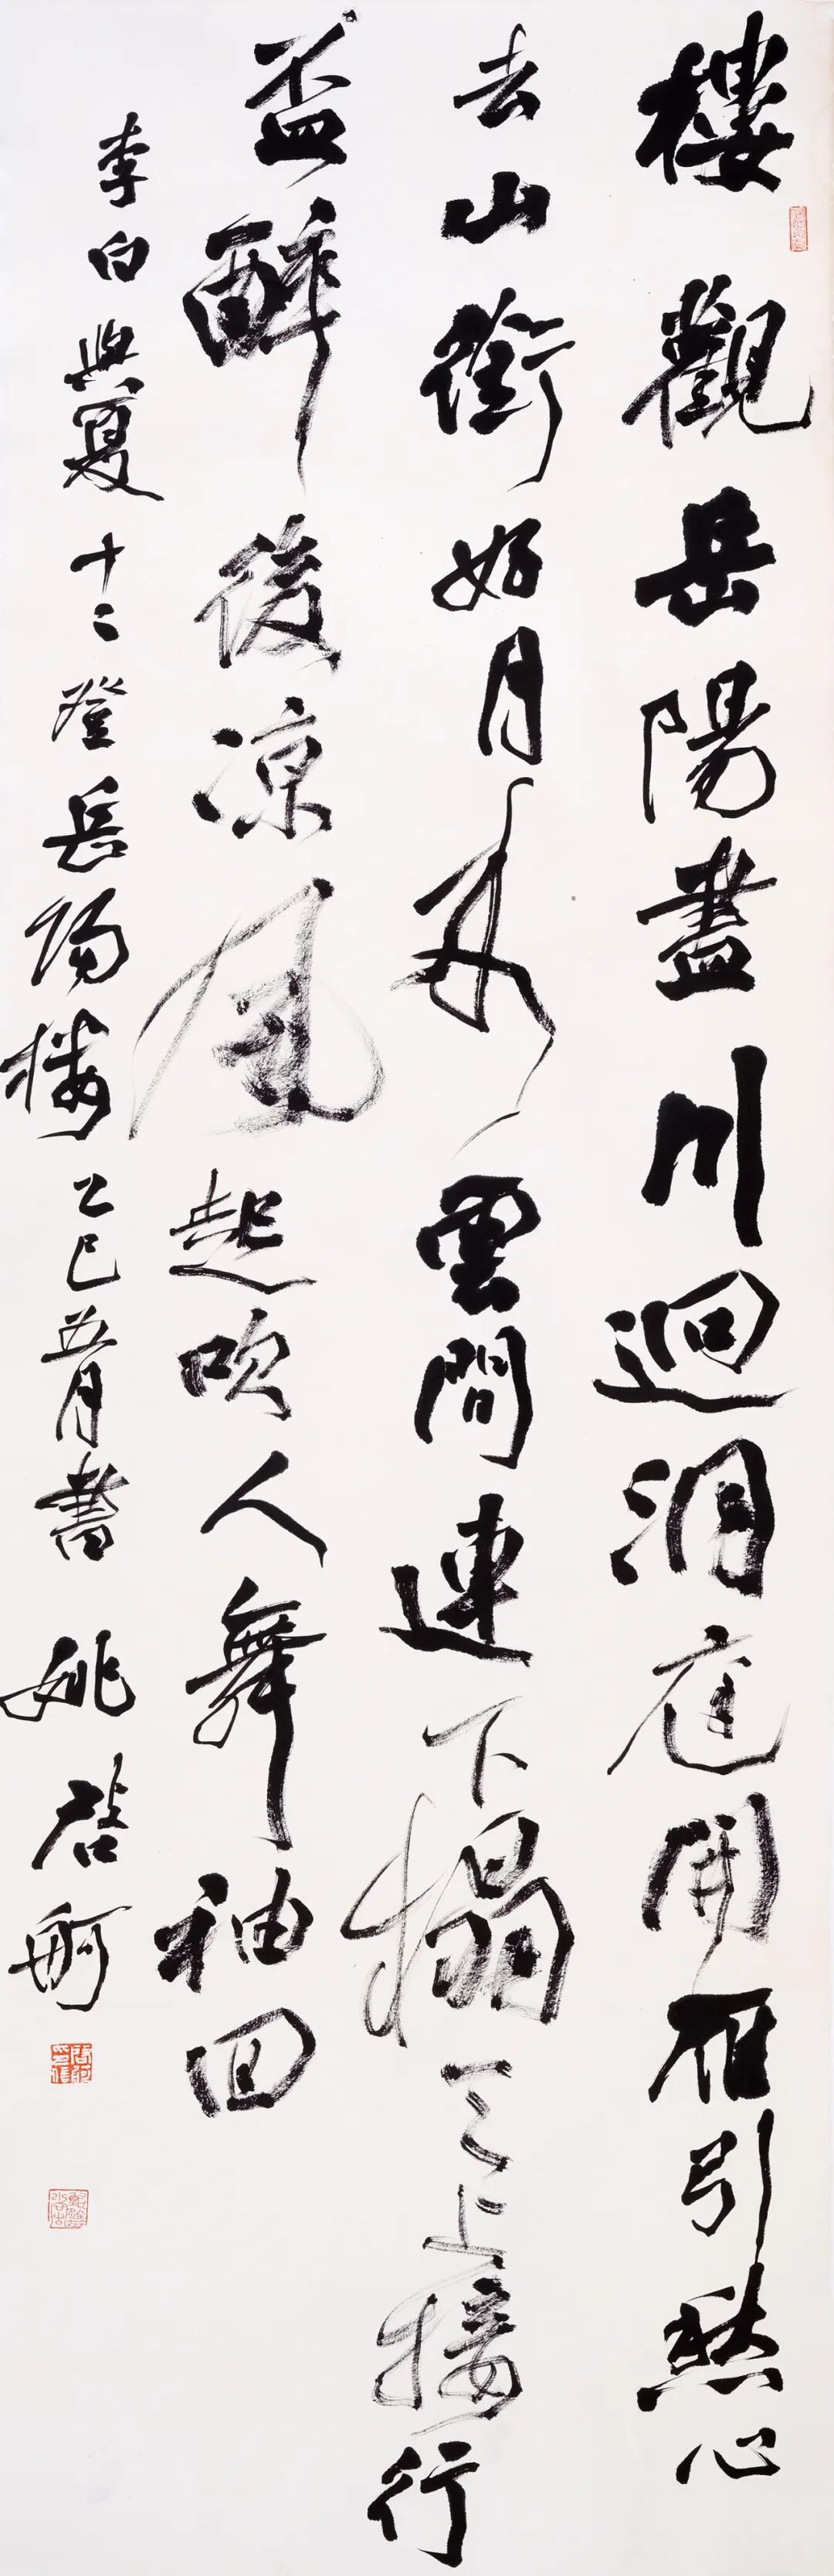 樓觀岳陽盡川迴洞庭開雁引愁心
去山銜好月來雲間連下榻天上接行
盃醉後凉風起吹人舞袖回
李白與夏十二登岳陽樓乙巳五月書 姚啓舸